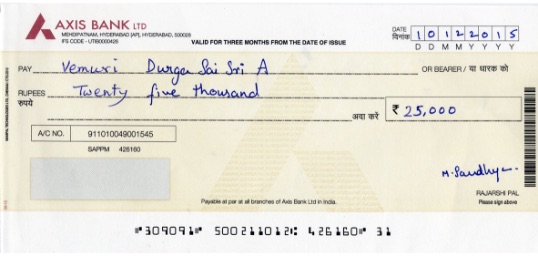 AXIS BANK LTD
MEHDIPATNAM, HYDERABAD [AP], HYDERABAD, 500028
IFS CODE - UTIB0000426
VALID FOR THREE MONTHS FROM THE DATE OF ISSUE
DATE दिनांक 10122015
D D M M Y Y Y Y
PAY Vemuri Durga Sai Sri A OR BEARER / या धारक को
RUPEES रुपये Twenty five thousand
अदा करें ₹ 25,000
A/C NO. 911010049001545
SAPPM 426160
M. Sandhya
RAJARSHI PAL
Please sign above
Payable at par at all branches of Axis Bank Ltd in India.
⑈309091⑈ 500211012⑆ 426160⑈ 31